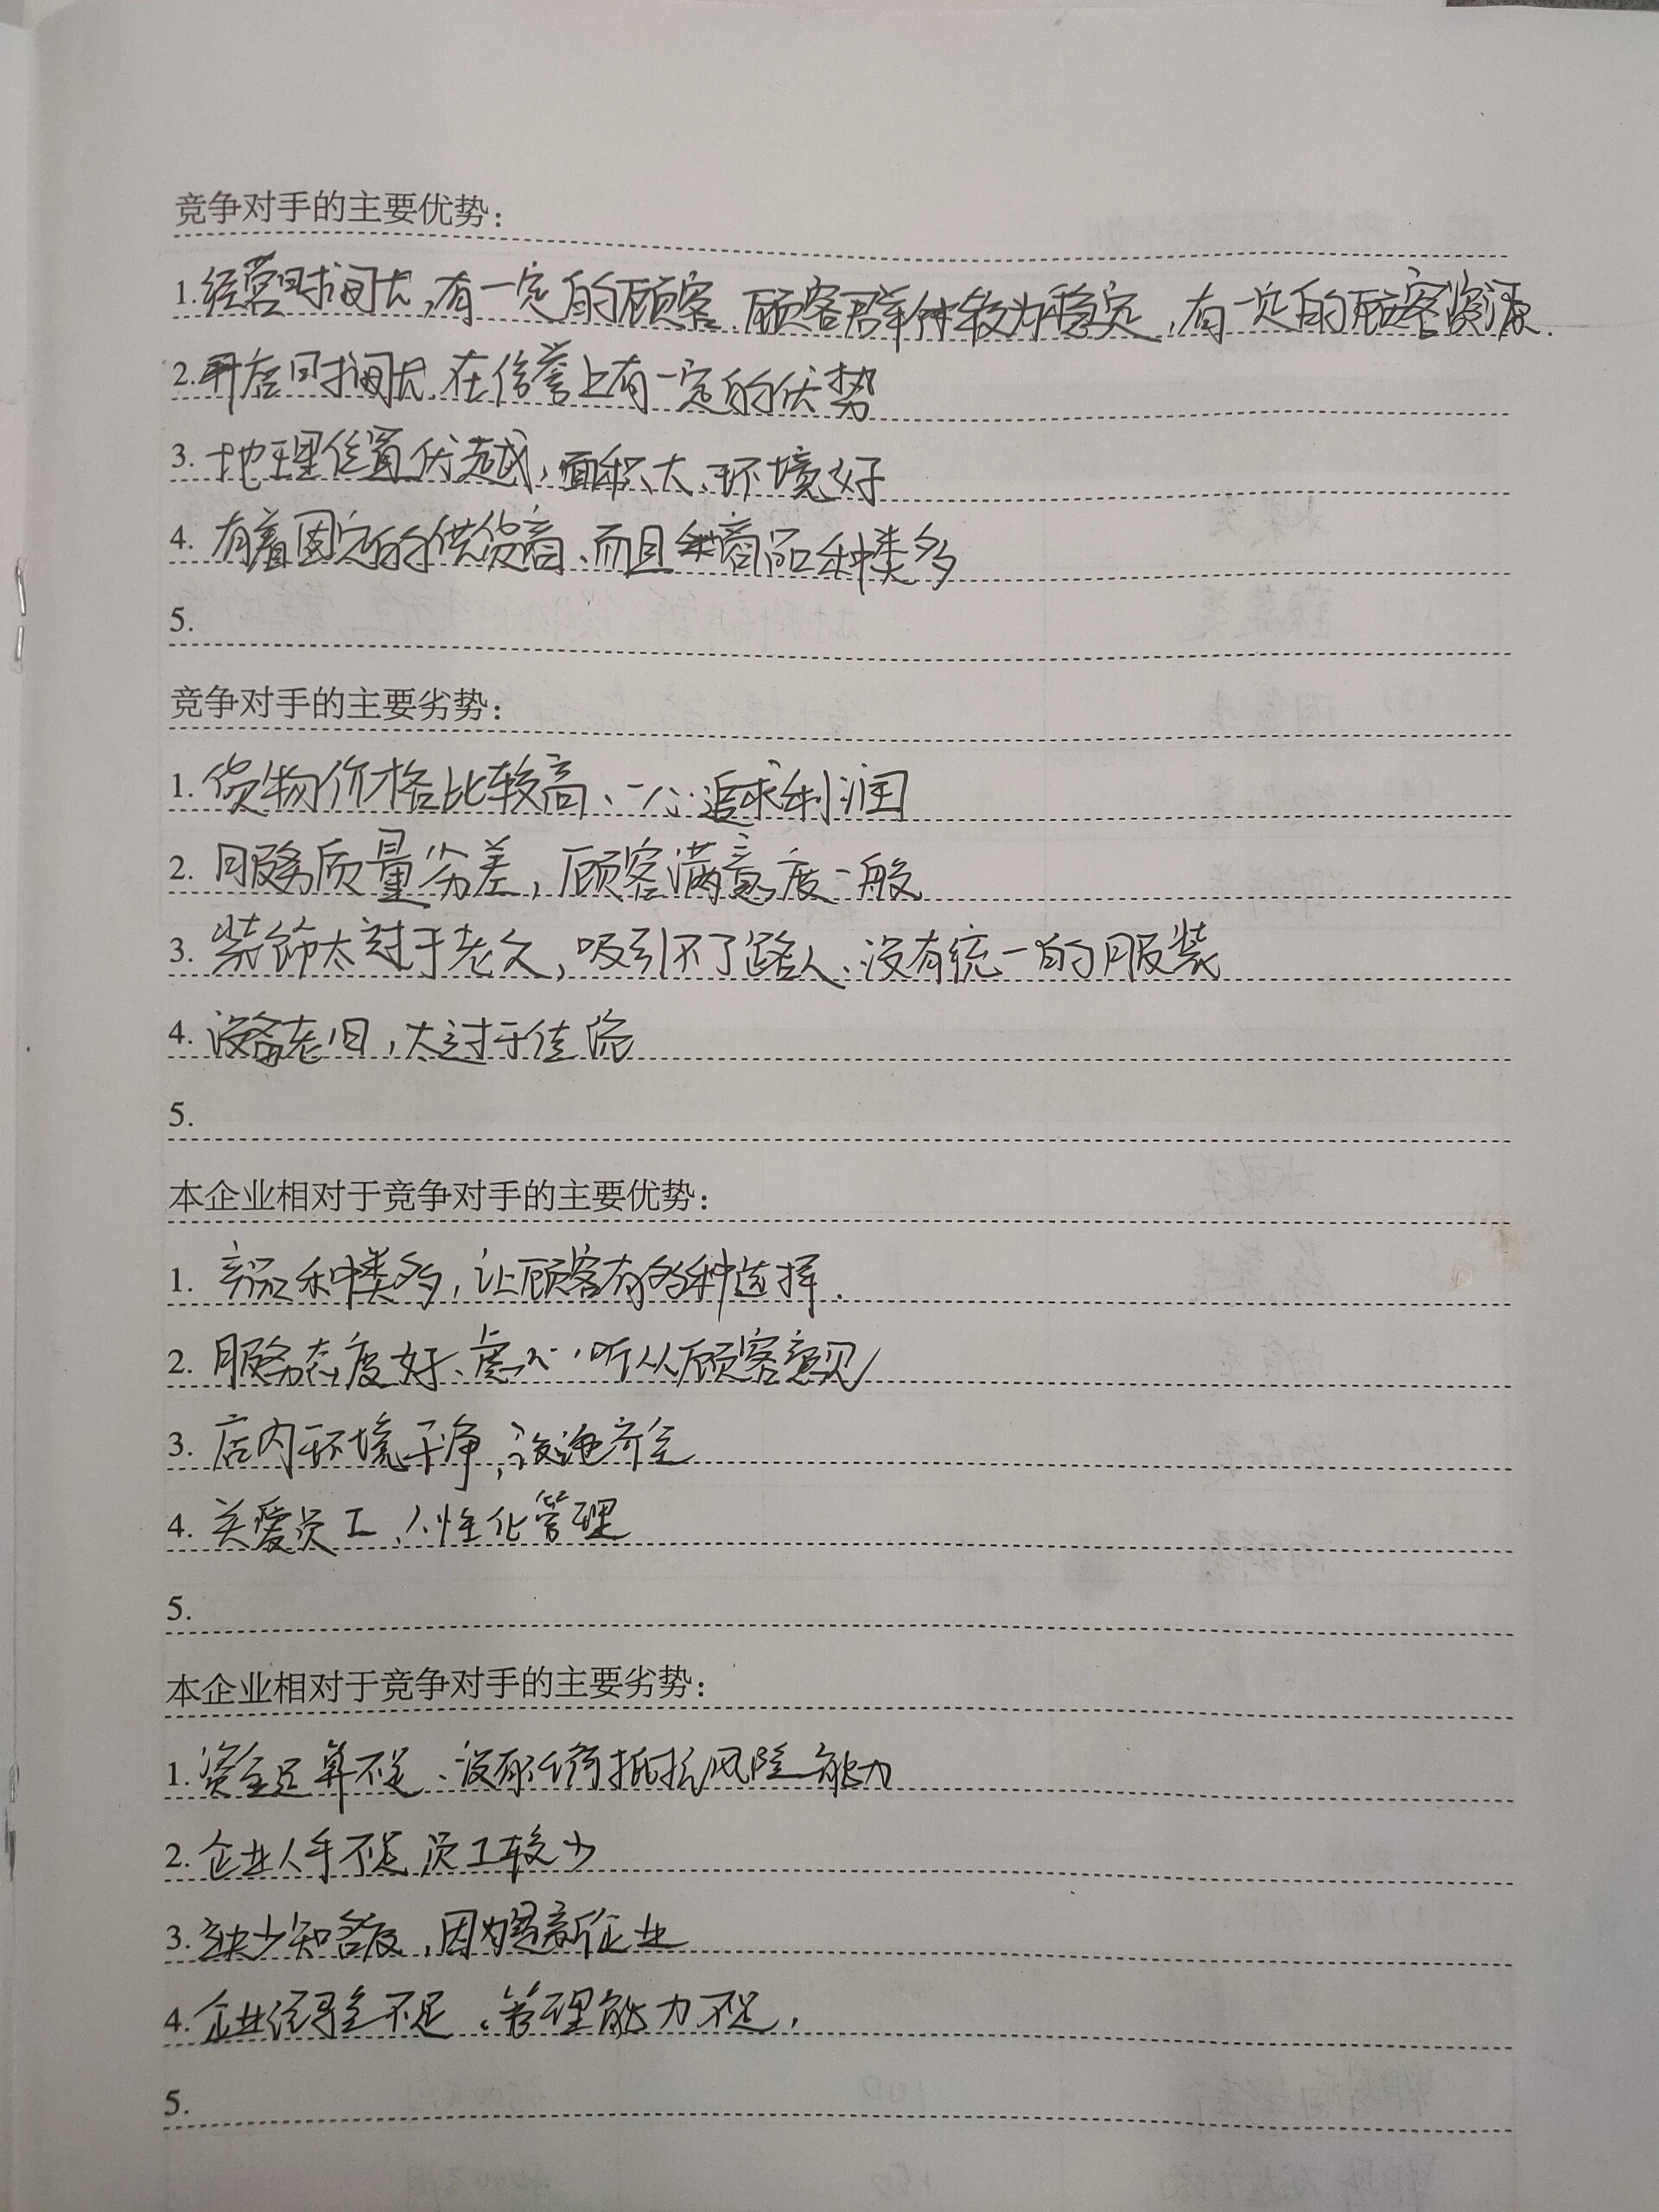 竞争对手的主要优势：
1.经营时间长,有一定的顾客、顾客群体较为稳定,有一定的顾客资源.
2.开店时间长,在信誉上有一定的优势
3.地理位置优越,面积大、环境好
4.有着固定的供货商、而且商品种类多
5.
竞争对手的主要劣势：
1.货物价格比较高、一心追求利润
2.服务质量劣差,顾客满意度一般
3.装饰太过于老久,吸引不了路人、没有统一的服装
4.设备老旧,太过于传统
5.
本企业相对于竞争对手的主要优势：
1.商品种类多,让顾客有多种选择.
2.服务态度好、虚心听从顾客意见
3.店内环境干净,设施齐全
4.关爱员工,人性化管理
5.
本企业相对于竞争对手的主要劣势：
1.资金运算不足、没有抵抗风险能力
2.企业人手不足,员工较少
3.缺少知名度,因为是新企业
4.企业经验不足、管理能力不足,
5.